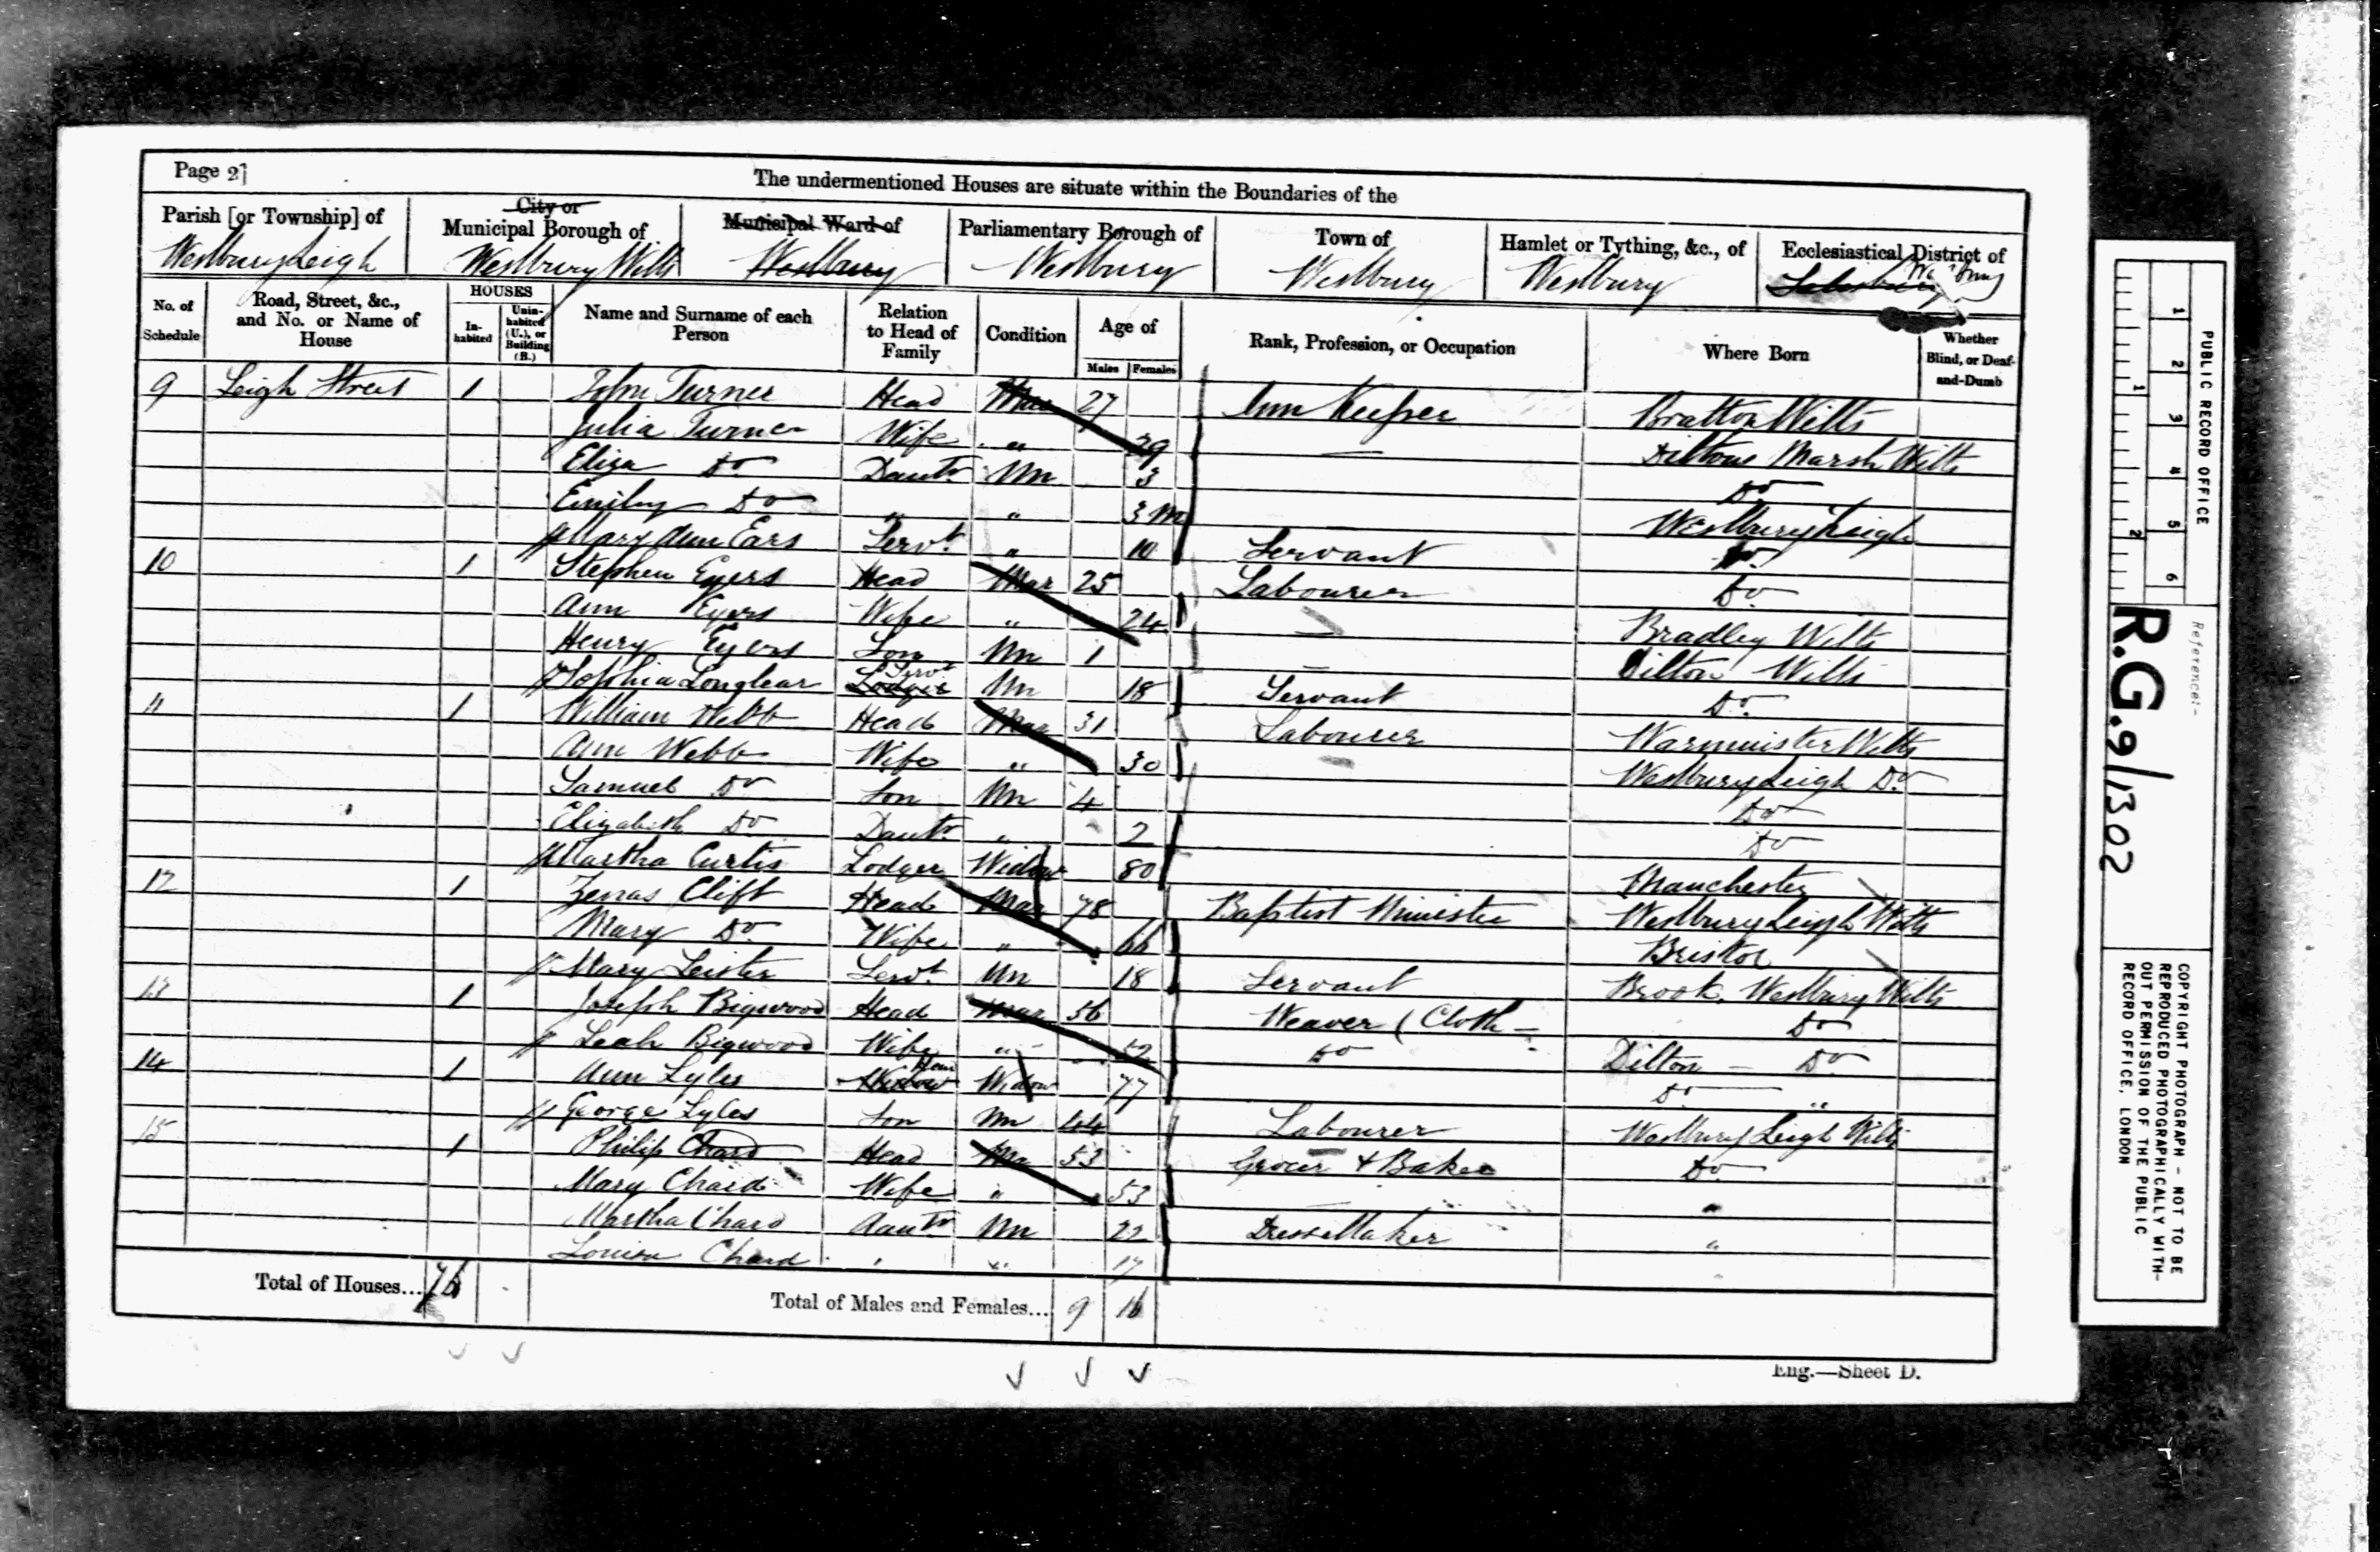 Page 2]
The undermentioned Houses are situate within the Boundaries of the
Parish [or Township] of
City or
Municipal Borough of
Municipal Ward of
Parliamentary Borough of
Town of
Hamlet or Tything, &c., of
Ecclesiastical District of
Westbury Leigh
Westbury Wilts
Westbury
Westbury
Westbury
Westbury
Westbury
No. of Schedule
Road, Street, &c., and No. or Name of House
HOUSES
In-habited
Unin-habited (U.), or Building (B.)
Name and Surname of each Person
Relation to Head of Family
Condition
Age of
Males
Females
Rank, Profession, or Occupation
Where Born
Whether Blind, or Deaf-and-Dumb
9 Leigh Street 1 John Turner Head Mar 27 Inn Keeper Bratton Wilts
Julia Turner Wife „ 29 — Diltons Marsh Wilts
Eliza Do Dautr Un 3 Do
Emiley Do „ „ 3 M Westbury Leigh
Mary Ann Ears Servt „ 10 Servant Do
10 1 Stephen Eyers Head Mar 25 Labourer Do
Ann Eyers Wife „ 24 — Bradley Wilts
Henry Eyers Son Un 1 — Dilton Wilts
Sophia Longlear Lodger Servt Un 18 Servant Do
11 1 William Webb Head Mar 31 Labourer Warminister Wilts
Ann Webb Wife „ 30 — Westbury Leigh Do
Samuel Do Son Un 4 Do
Elizabeth Do Dautr „ 2 Do
Martha Curtis Lodger Widow 80 Manchester
12 1 Zenas Clift Head Mar 78 Baptist Minister Westbury Leigh Wilts
Mary Do Wife „ 66 Bristol
Mary Leister Servt Un 18 Servant Brook Westbury Wilts
13 1 Joseph Bigwood Head Mar 56 Weaver (Cloth — Do
Leah Bigwood Wife „ 52 Do Dilton — Do
14 1 Ann Lyles Widow Head Widow 77 Do „
George Lyles Son Un 44 Labourer Westbury Leigh Wilts
15 1 Philip Chard Head Mar 53 Grocer & Baker Do
Mary Chard Wife „ 53 — „
Martha Chard Dautr Un 22 Dress Maker „
Louisa Chard „ „ 17 „
Total of Houses... 7
Total of Males and Females... 9 16
Eng.—Sheet D.
PUBLIC RECORD OFFICE
1 2 3 4 5 6
1 2
Reference:-
R.G. 9/1302
COPYRIGHT PHOTOGRAPH - NOT TO BE
REPRODUCED PHOTOGRAPHICALLY WITH-
OUT PERMISSION OF THE PUBLIC
RECORD OFFICE, LONDON